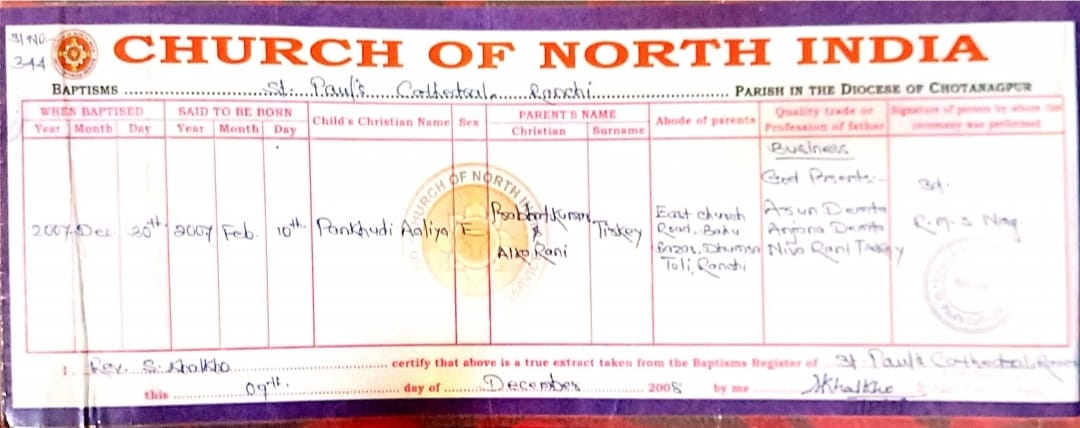 Sl No.
344
CHURCH OF NORTH INDIA
BAPTISMS St. Paul's Cathedral, Ranchi PARISH IN THE DIOCESE OF CHOTANAGPUR
WHEN BAPTISED SAID TO BE BORN Child's Christian Name Sex PARENT'S NAME Abode of parents Quality trade or Profession of father Signature of person by whom the ceremony was performed
Year Month Day Year Month Day Christian Surname
Business
God Parents:-
2007 Dec 30th 2007 Feb. 10th Pankhudi Aaliya F
& Alko Rani
Tirkey
East church
Road, Bazar,
Toli, Ranchi
Arjun
Anjana
Rani Tirkey
Sd.
R.M.S Nag
CHURCH OF NORTH
I Rev. S. Khalkho certify that above is a true extract taken from the Baptisms Register of St. Paul's Cathedral,
this 09th. day of December 2008 by me SKhalkho